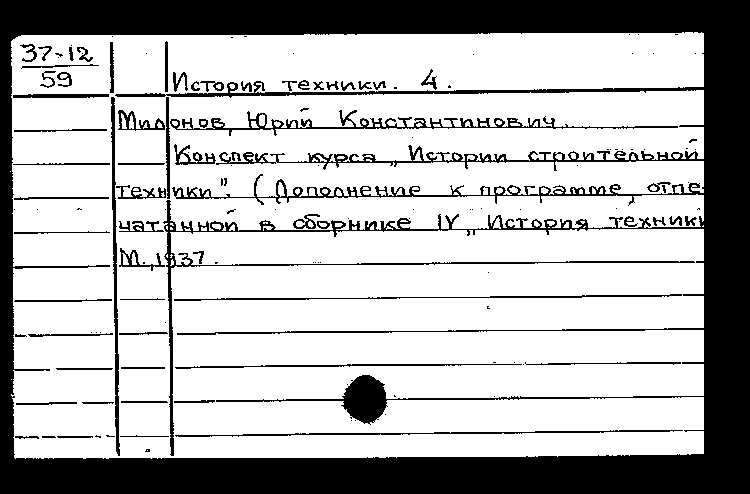 37-12
59
История техники. 4.
Милонов, Юрий Константинович.
Конспект курса „Истории строительной
техники". (Дополнение к программе, отпе-
чатанной в сборнике IV „История техники
М., 1937.